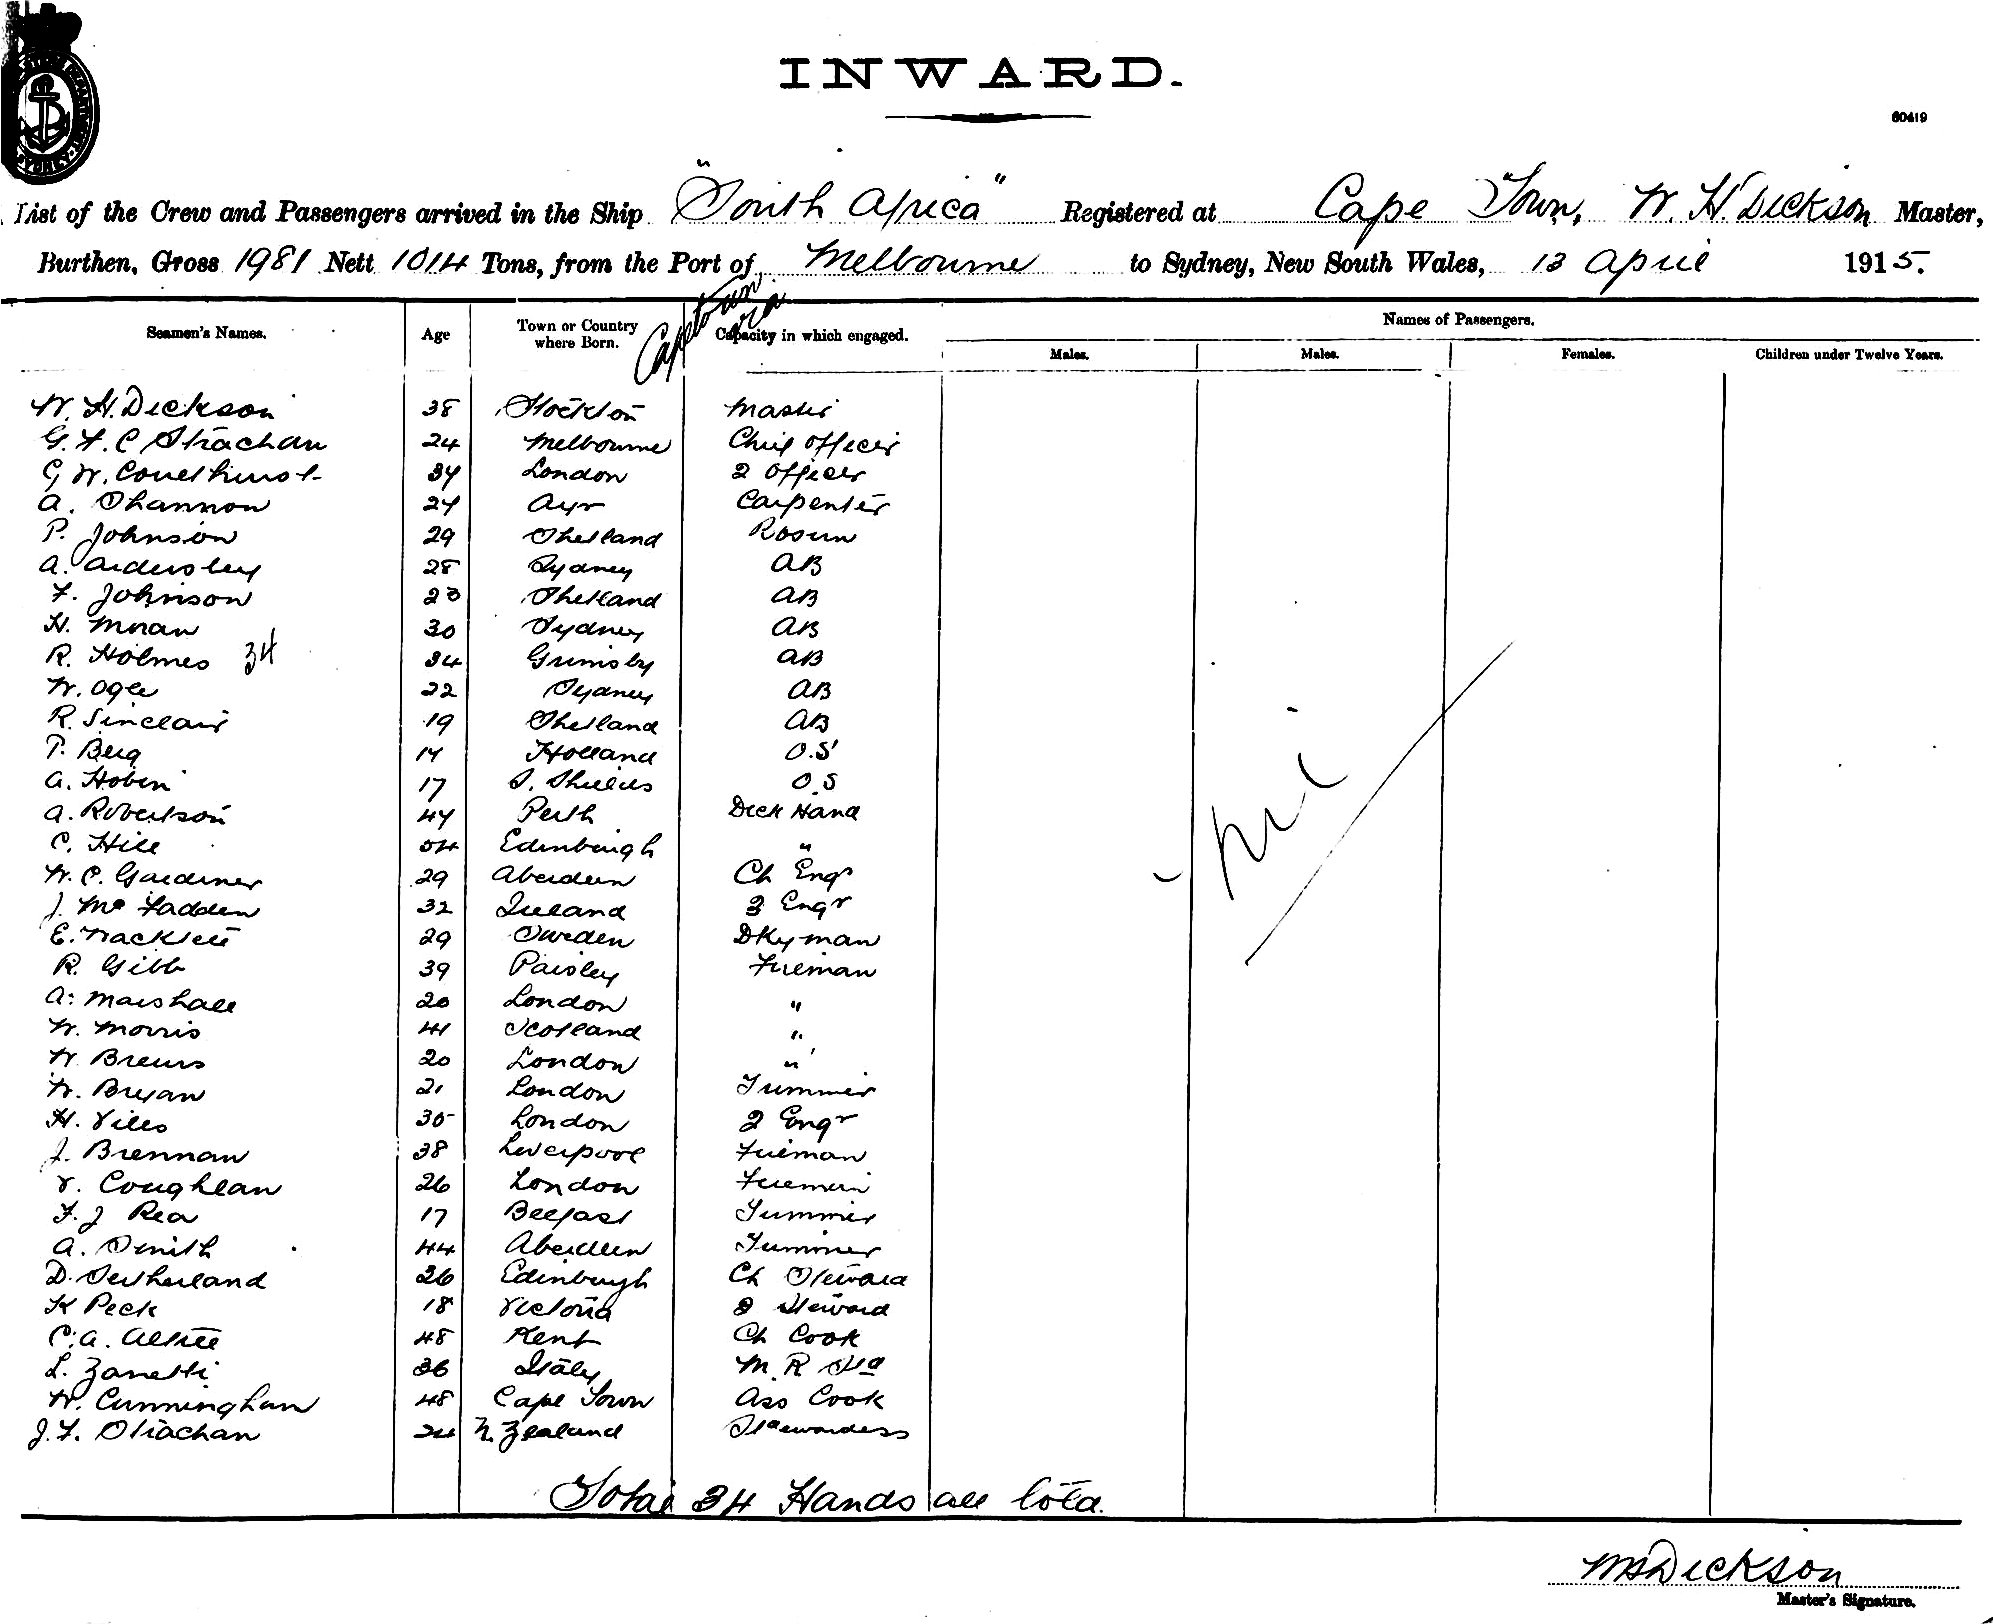 INWARD.
60419
List of the Crew and Passengers arrived in the Ship "South Africa" Registered at Cape Town, W. H. Dickson Master,
Burthen, Gross 1981 Nett 1014 Tons, from the Port of Melbourne to Sydney, New South Wales, 13 April 1915.
Capetown via
Seamen's Names. Age Town or Country where Born. Capacity in which engaged. Names of Passengers.
Males. Males. Females. Children under Twelve Years.
W. H. Dickson 38 Stockton Master
G. F. C Strachan 24 Melbourne Chief Officer
G W. 34 London 2 Officer
A. Shannon 24 Ayr Carpenter
P. Johnson 29 Shetland Bosun
A. Ardersley 28 Sydney AB
F. Johnson 23 Shetland AB
H. Moran 30 Sydney AB
R. Holmes 34 34 Grimsby AB
W. Ogle 22 Sydney AB
R. Sinclair 19 Shetland AB
P. Berg Holland O.S
A. Hobin 17 S. Shields O.S
A. Robertson 44 Perth Deck Hand
C. Hill 54 Edinburgh "
W. C. Gardiner 29 Aberdeen Ch Engr
J. McFadden 32 Ireland 3 Engr
E. 29 Sweden Dkyman
R. Gibb 39 Paisley Fireman
A. Marshall 20 London "
W. Morris 41 Scotland "
W Brews 20 London "
W. Bryan 21 London Trimmer
H. Viles 35 London 2 Engr
J. Brennan 38 Liverpool Fireman
V. Coughlan 26 London Fireman
F. J Rea 17 Belfast Trimmer
A. Smith 44 Aberdeen Trimmer
D. Sutherland 26 Edinburgh Ch Steward
K Peck 18 Victoria 2 Steward
C. A. 48 Kent Ch Cook
L. Zanetti 36 Italy M. R Std
W. Cunningham 48 Cape Town Ass Cook
J. F. Strachan 24 N. Zealand Stewardess
Nil
Total 34 Hands all told.
WHDickson
Master's Signature.